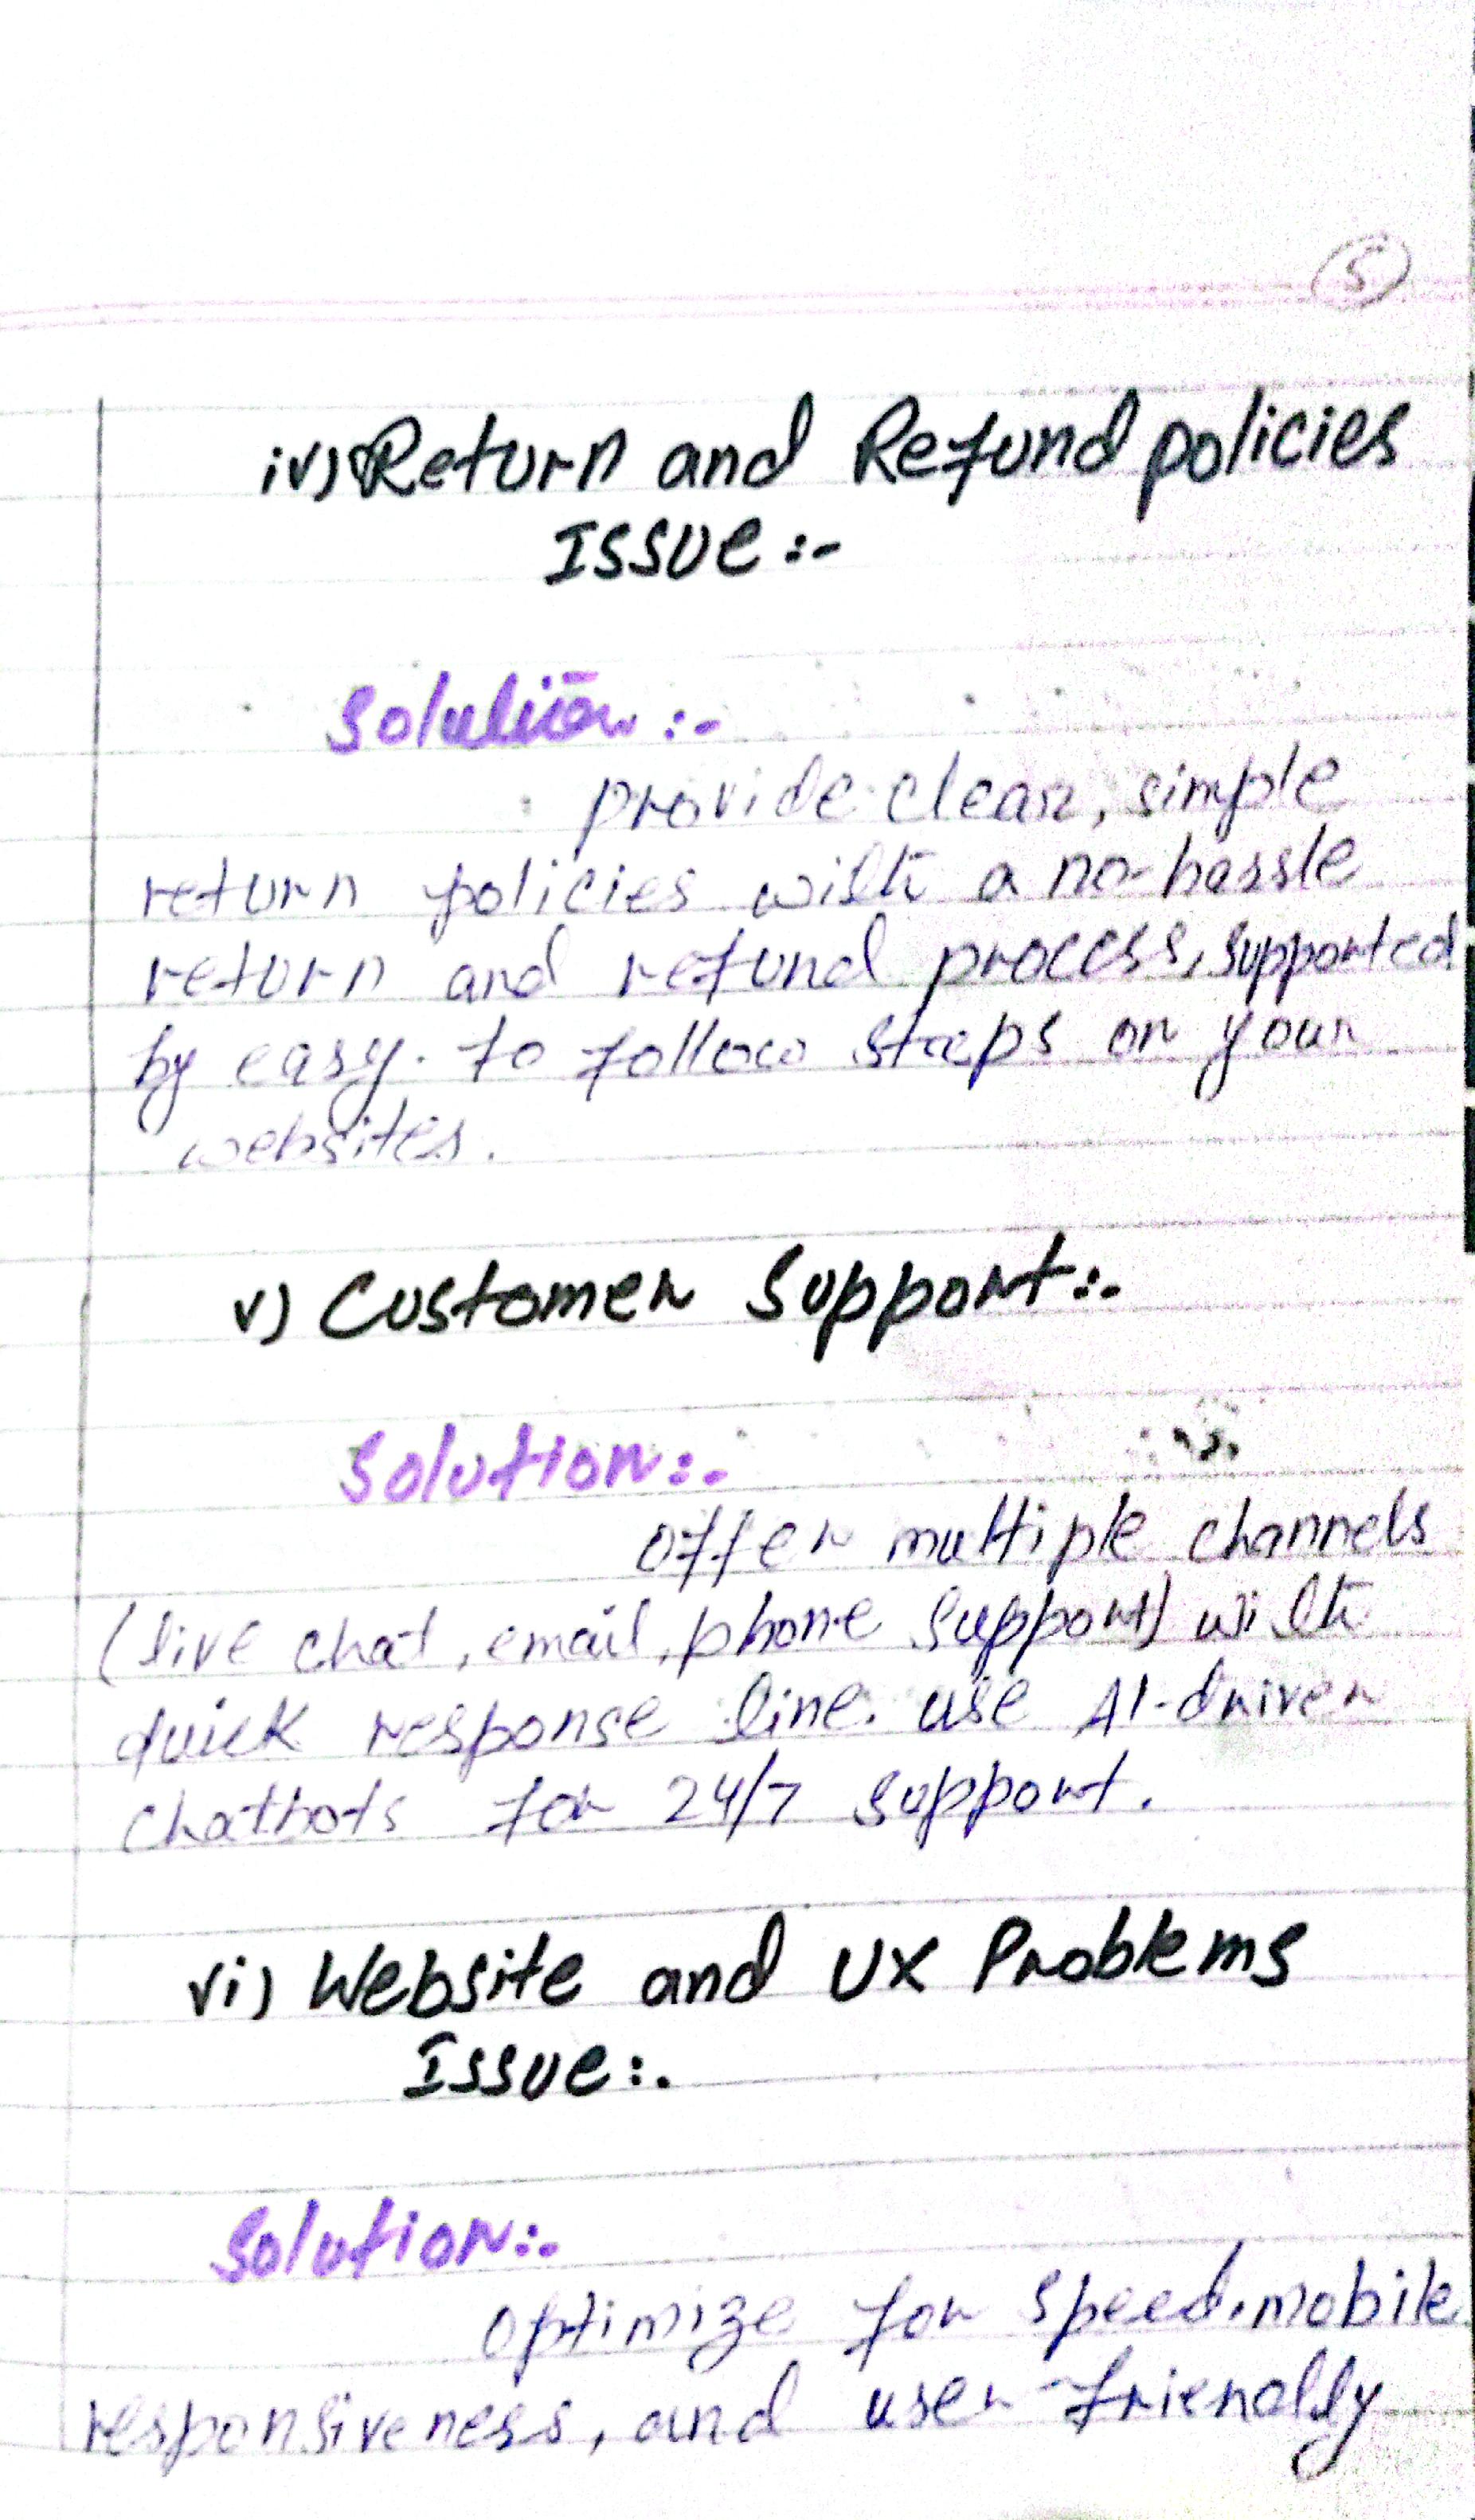 5
iv) Return and Refund policies
Issue :-
Solution :-
provide clear, simple
return policies with a no-hassle
return and refund process, supported
by easy. to follow steps on your
websites.
v) Customer Support :-
Solution :-
Offer multiple channels
(live chat, email, phone support) with
quick response line. use AI-driven
chatbots for 24/7 support.
vi) Website and UX Problems
Issue :-
Solution :-
Optimize for speed, mobile
responsiveness, and user-friendly